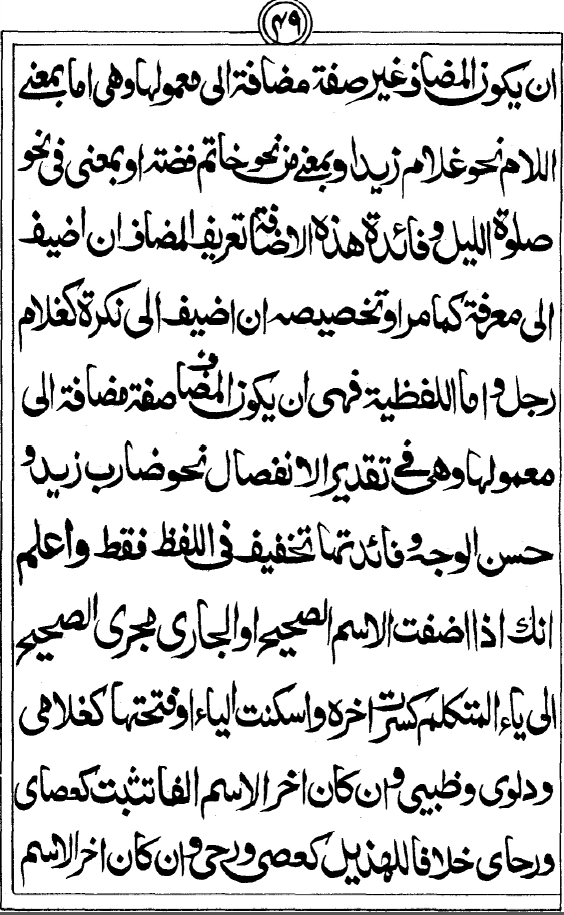 ٤٩
ان يكون المضاف غير صفة مضافة الى معمولها وهى اما بمعنى
اللام نحو غلام زيد او بمعنى من نحو خاتم فضة او بمعنى فى نحو
صلوة الليل وفائدة هذه الاضافة تعريف المضاف ان اضيف
الى معرفة كما مر او تخصيصه ان اضيف الى نكرة كغلام
رجل واما اللفظية فهى ان يكون المضاف صفة مضافة الى
معمولها وهى فى تقدير الانفصال نحو ضارب زيد و
حسن الوجه وفائدتها تخفيف فى اللفظ فقط واعلم
انك اذا اضفت الاسم الصحيح او الجارى مجرى الصحيح
الى ياء المتكلم كسرت اخره واسكنت الياء او فتحتها كغلامى
ودلوى وظبيى وان كان اخر الاسم الفا تثبت كعصاى
ورحاى خلافا للهذيل كعصى ورحى وان كان اخر الاسم